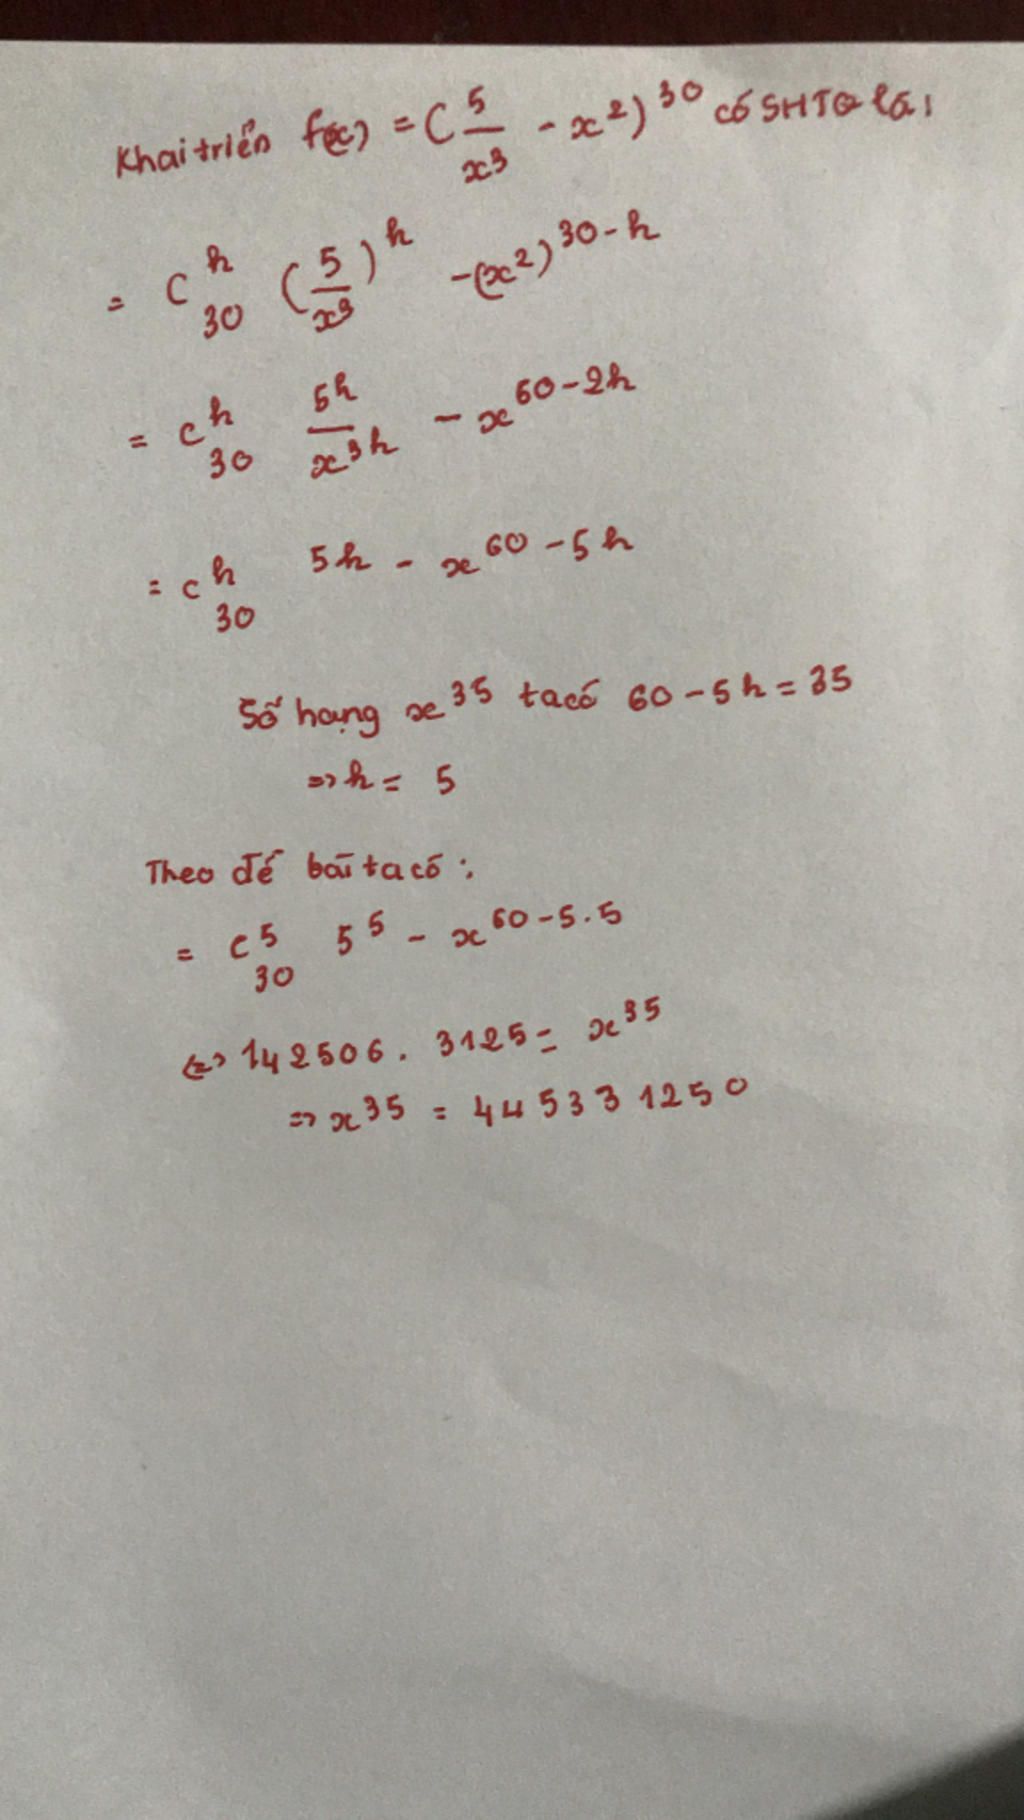 Khai triển f(x) = (5/x³ - x²)³⁰ có SHTQ là:
= C₃₀ᵏ (5/x³)ᵏ -(x²)³⁰⁻ᵏ
= C₃₀ᵏ 5ᵏ/x³ᵏ - x⁶⁰⁻²ᵏ
= C₃₀ᵏ 5k - x⁶⁰⁻⁵ᵏ
Số hạng x³⁵ ta có 60-5k=35
=> k = 5
Theo đề bài ta có:
= C₃₀⁵ 5⁵ - x⁶⁰⁻⁵·⁵
<=> 142506 . 3125 = x³⁵
=> x³⁵ = 445331250